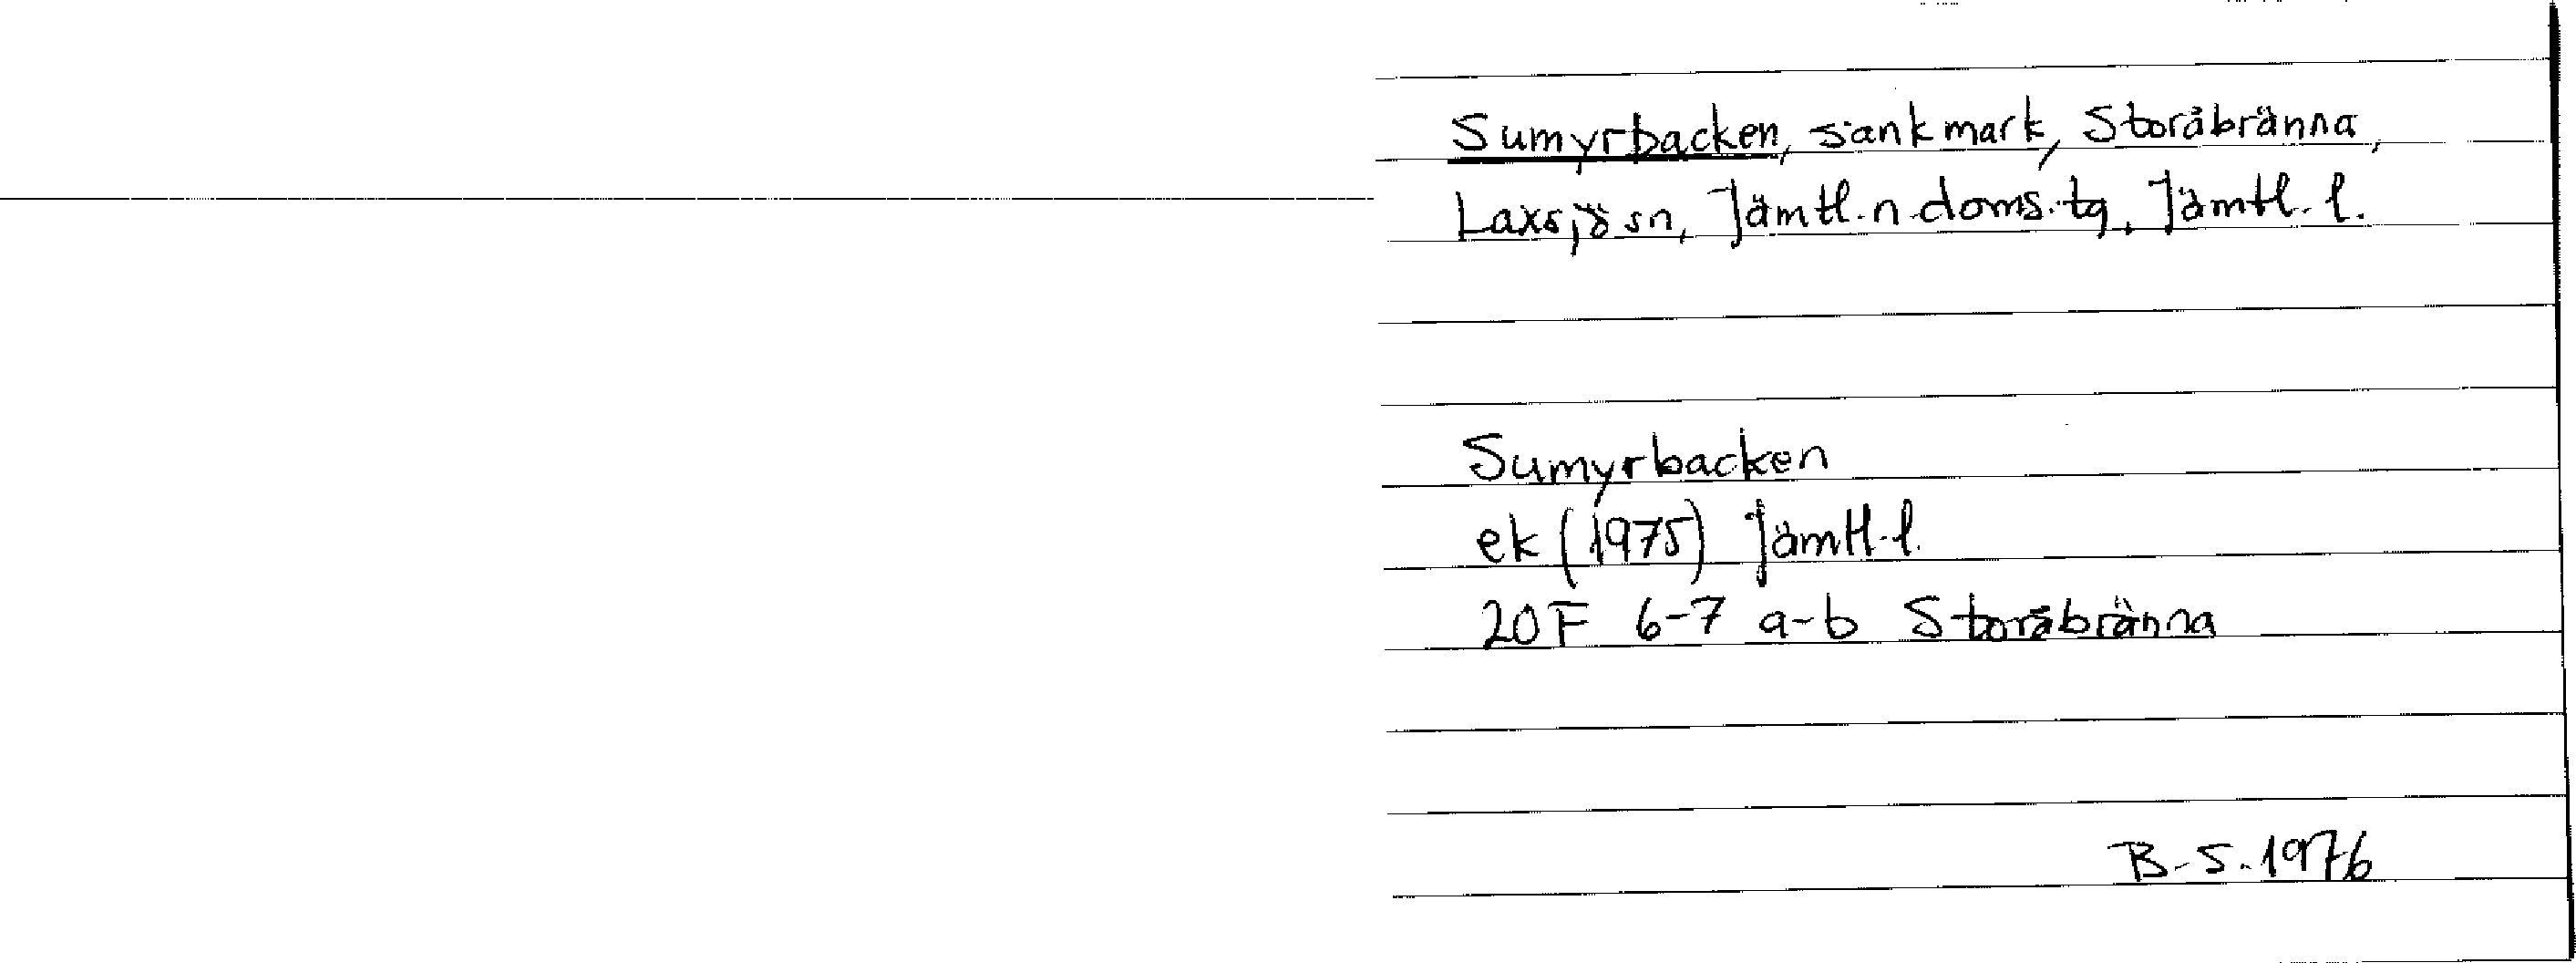 Sumyrbacken, sankmark, Storåbränna,
Laxsjö sn, Jämtl. n. doms. tg, Jämtl. l.
Sumyrbacken
ek (1975) Jämtl. l.
20F 6-7 a-b Storåbränna
B-S. 1976